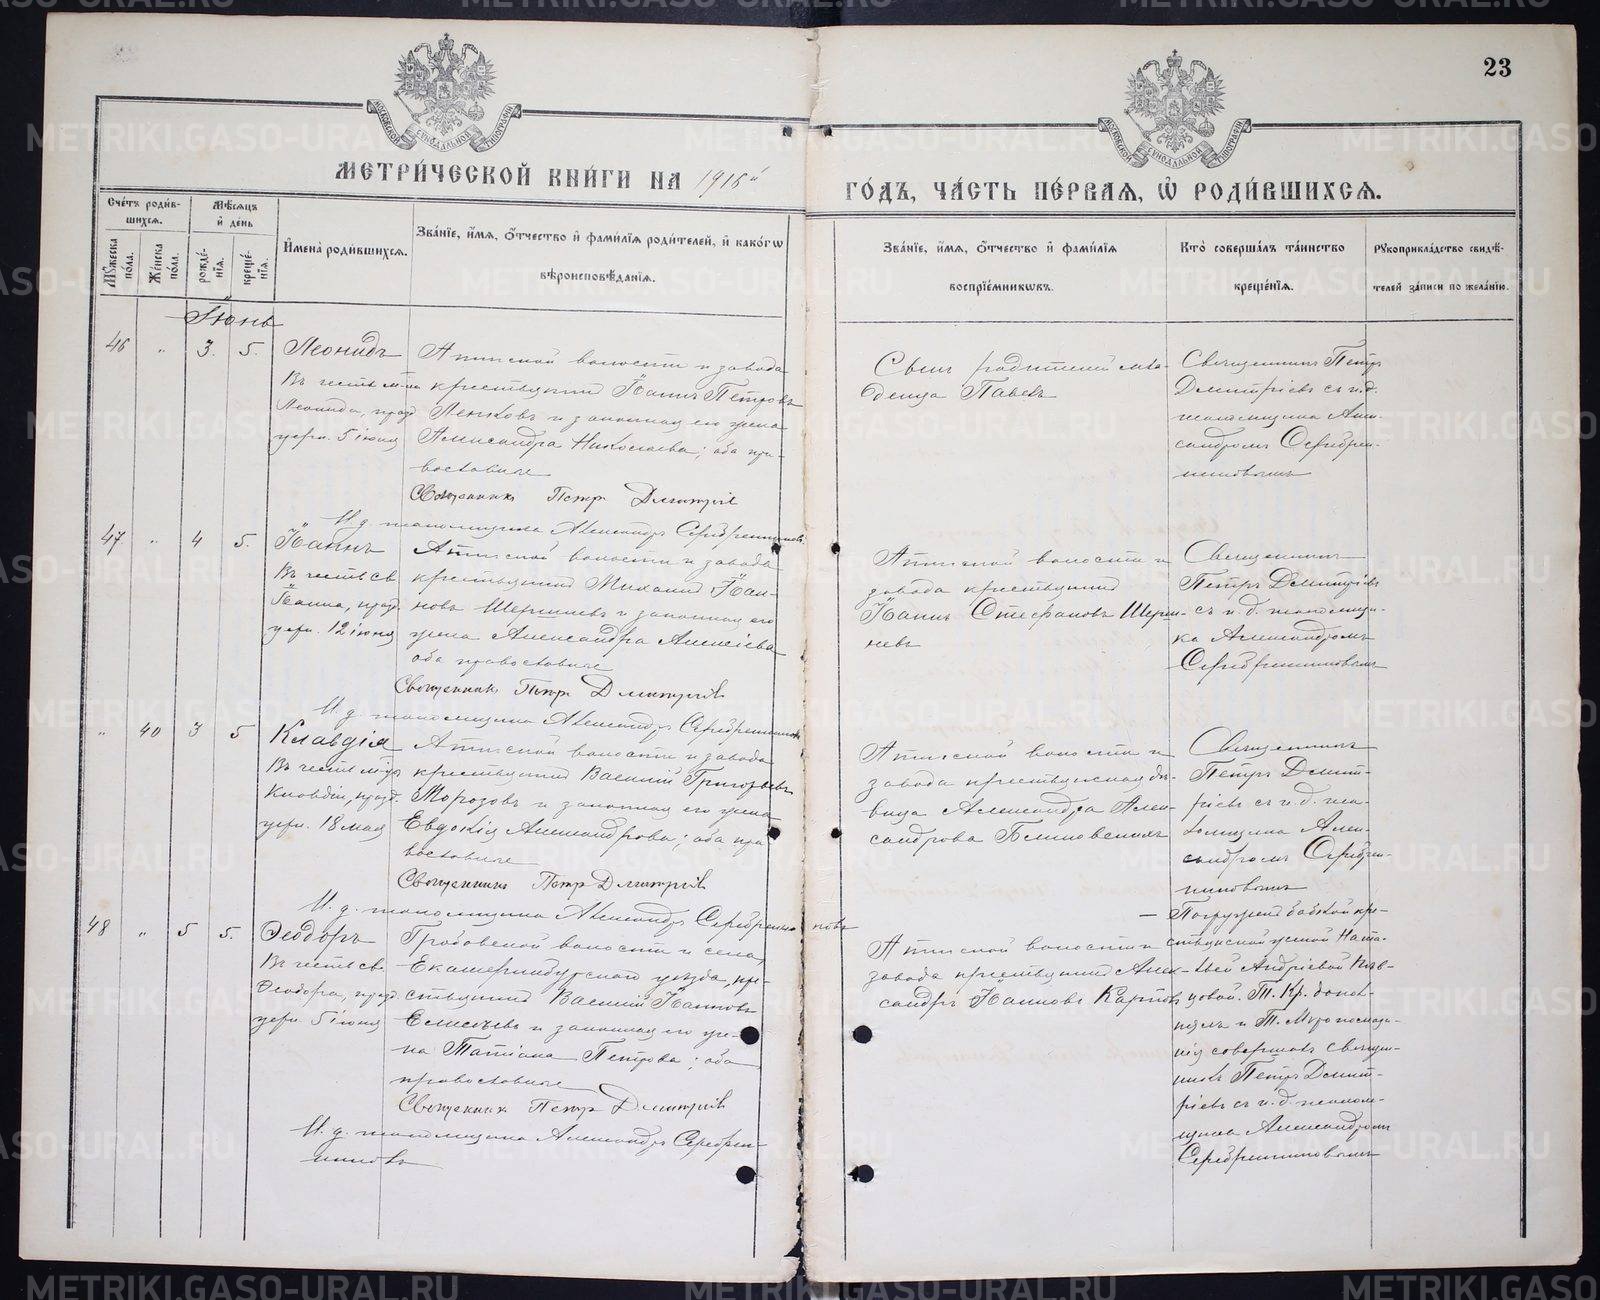 23
МЕТРИ́ЧЕСКОЙ КНИ́ГИ НА 1916й
ГО́ДЪ, ЧА́СТЬ ПЕ́РВАЯ, Ѽ РОДИ́ВШИХСЯ.
Сче́тъ роди́в-
шихся.
Мѣ́сяцъ
и҆ де́нь
Мꙋ́жеска
по́ла.
Же́нска
по́ла.
рожде́-
нїя.
креще́-
нїя.
И҆мена̀ роди́вшихся.
Зва́нїе, и҆́мя, ѻ҆́тчество и҆ фами́лїя роди́телей, и҆ како́гѡ
вѣроисповѣ́данїя.
Зва́нїе, и҆́мя, ѻ҆́тчество и҆ фами́лїя
воспрїе́мникѡвъ.
Кто̀ соверша́лъ та́инство
креще́нїя.
Рꙋкоприкла́дство свидѣ́-
телей за́писи по жела́нїю.
Іюнь
46 " 3. 5. Леонидъ
Въ честь м-ка
Леонида, празд.
церк. 5 іюня
Атигской волости и завода
крестьянинъ Іоаннъ Петровъ
Ленковъ и законная его жена
Александра Николаева; оба пра-
вославные
Священникъ Петр Дмитріев
И. д. псаломщика Александръ Серебренниковъ
Сынъ родителей мла-
денца Павелъ
Священникъ Петръ
Дмитріевъ съ и. д.
псаломщика Алек-
сандромъ Серебрен-
никовымъ
47 " 4 5. Іоаннъ
Въ честь св.
Іоанна, празд.
церк. 12 іюня
Атигской волости и завода
крестьянинъ Михаилъ Іоан-
новъ Шершневъ и законная его
жена Александра Алексіева
оба православные
Священникъ Петр Дмитріев
И. д. псаломщика Александръ Серебренниковъ
Атигской волости и
завода крестьянинъ
Іоаннъ Стефановъ Шерш-
невъ
Священникъ
Петръ Дмитріевъ
съ и. д. псаломщи-
ка Александромъ
Серебренниковымъ
" 40 3 5 Клавдія
Въ честь м-цы
Клавдіи, празд.
церк. 18 мая
Атигской волости и завода
крестьянинъ Василій Григорьевъ
Морозовъ и законная его жена
Евдокія Александрова; оба пра-
вославные
Священникъ Петр Дмитріев
И. д. псаломщика Александръ Серебренниковъ
Атигской волости и
завода крестьянская дѣ-
вица Александра Алек-
сандрова
Священникъ
Петръ Дмит-
ріевъ съ и. д. пса-
ломщика Алек-
сандромъ Серебрен-
никовымъ
48 " 5 5. Ѳеодоръ
Въ честь св.
Ѳеодора, празд.
церк. 5 іюня
Гробовской волости и села,
Екатеринбургскаго уѣзда, кре-
стьянинъ Василій Іоанновъ
Елисѣевъ и законная его же-
на Татіана Петрова; оба
православные
Священник Петр Дмитріев
И. д. псаломщика Александръ Серебрен-
никовъ
Атигской волости и
завода крестьянинъ Алек-
сандръ Іоанновъ Карпов
— Погружен бабкой кре-
стьянской женой Ната-
льей Андріевой
Т. Кр. допол-
нялъ и Т. Мѵропомаза-
нія совершалъ священ-
никъ Петръ Дмит-
ріевъ съ и. д. псалом-
щика Александромъ
Серебренниковымъ
METRIKI.GASO-URAL.RU